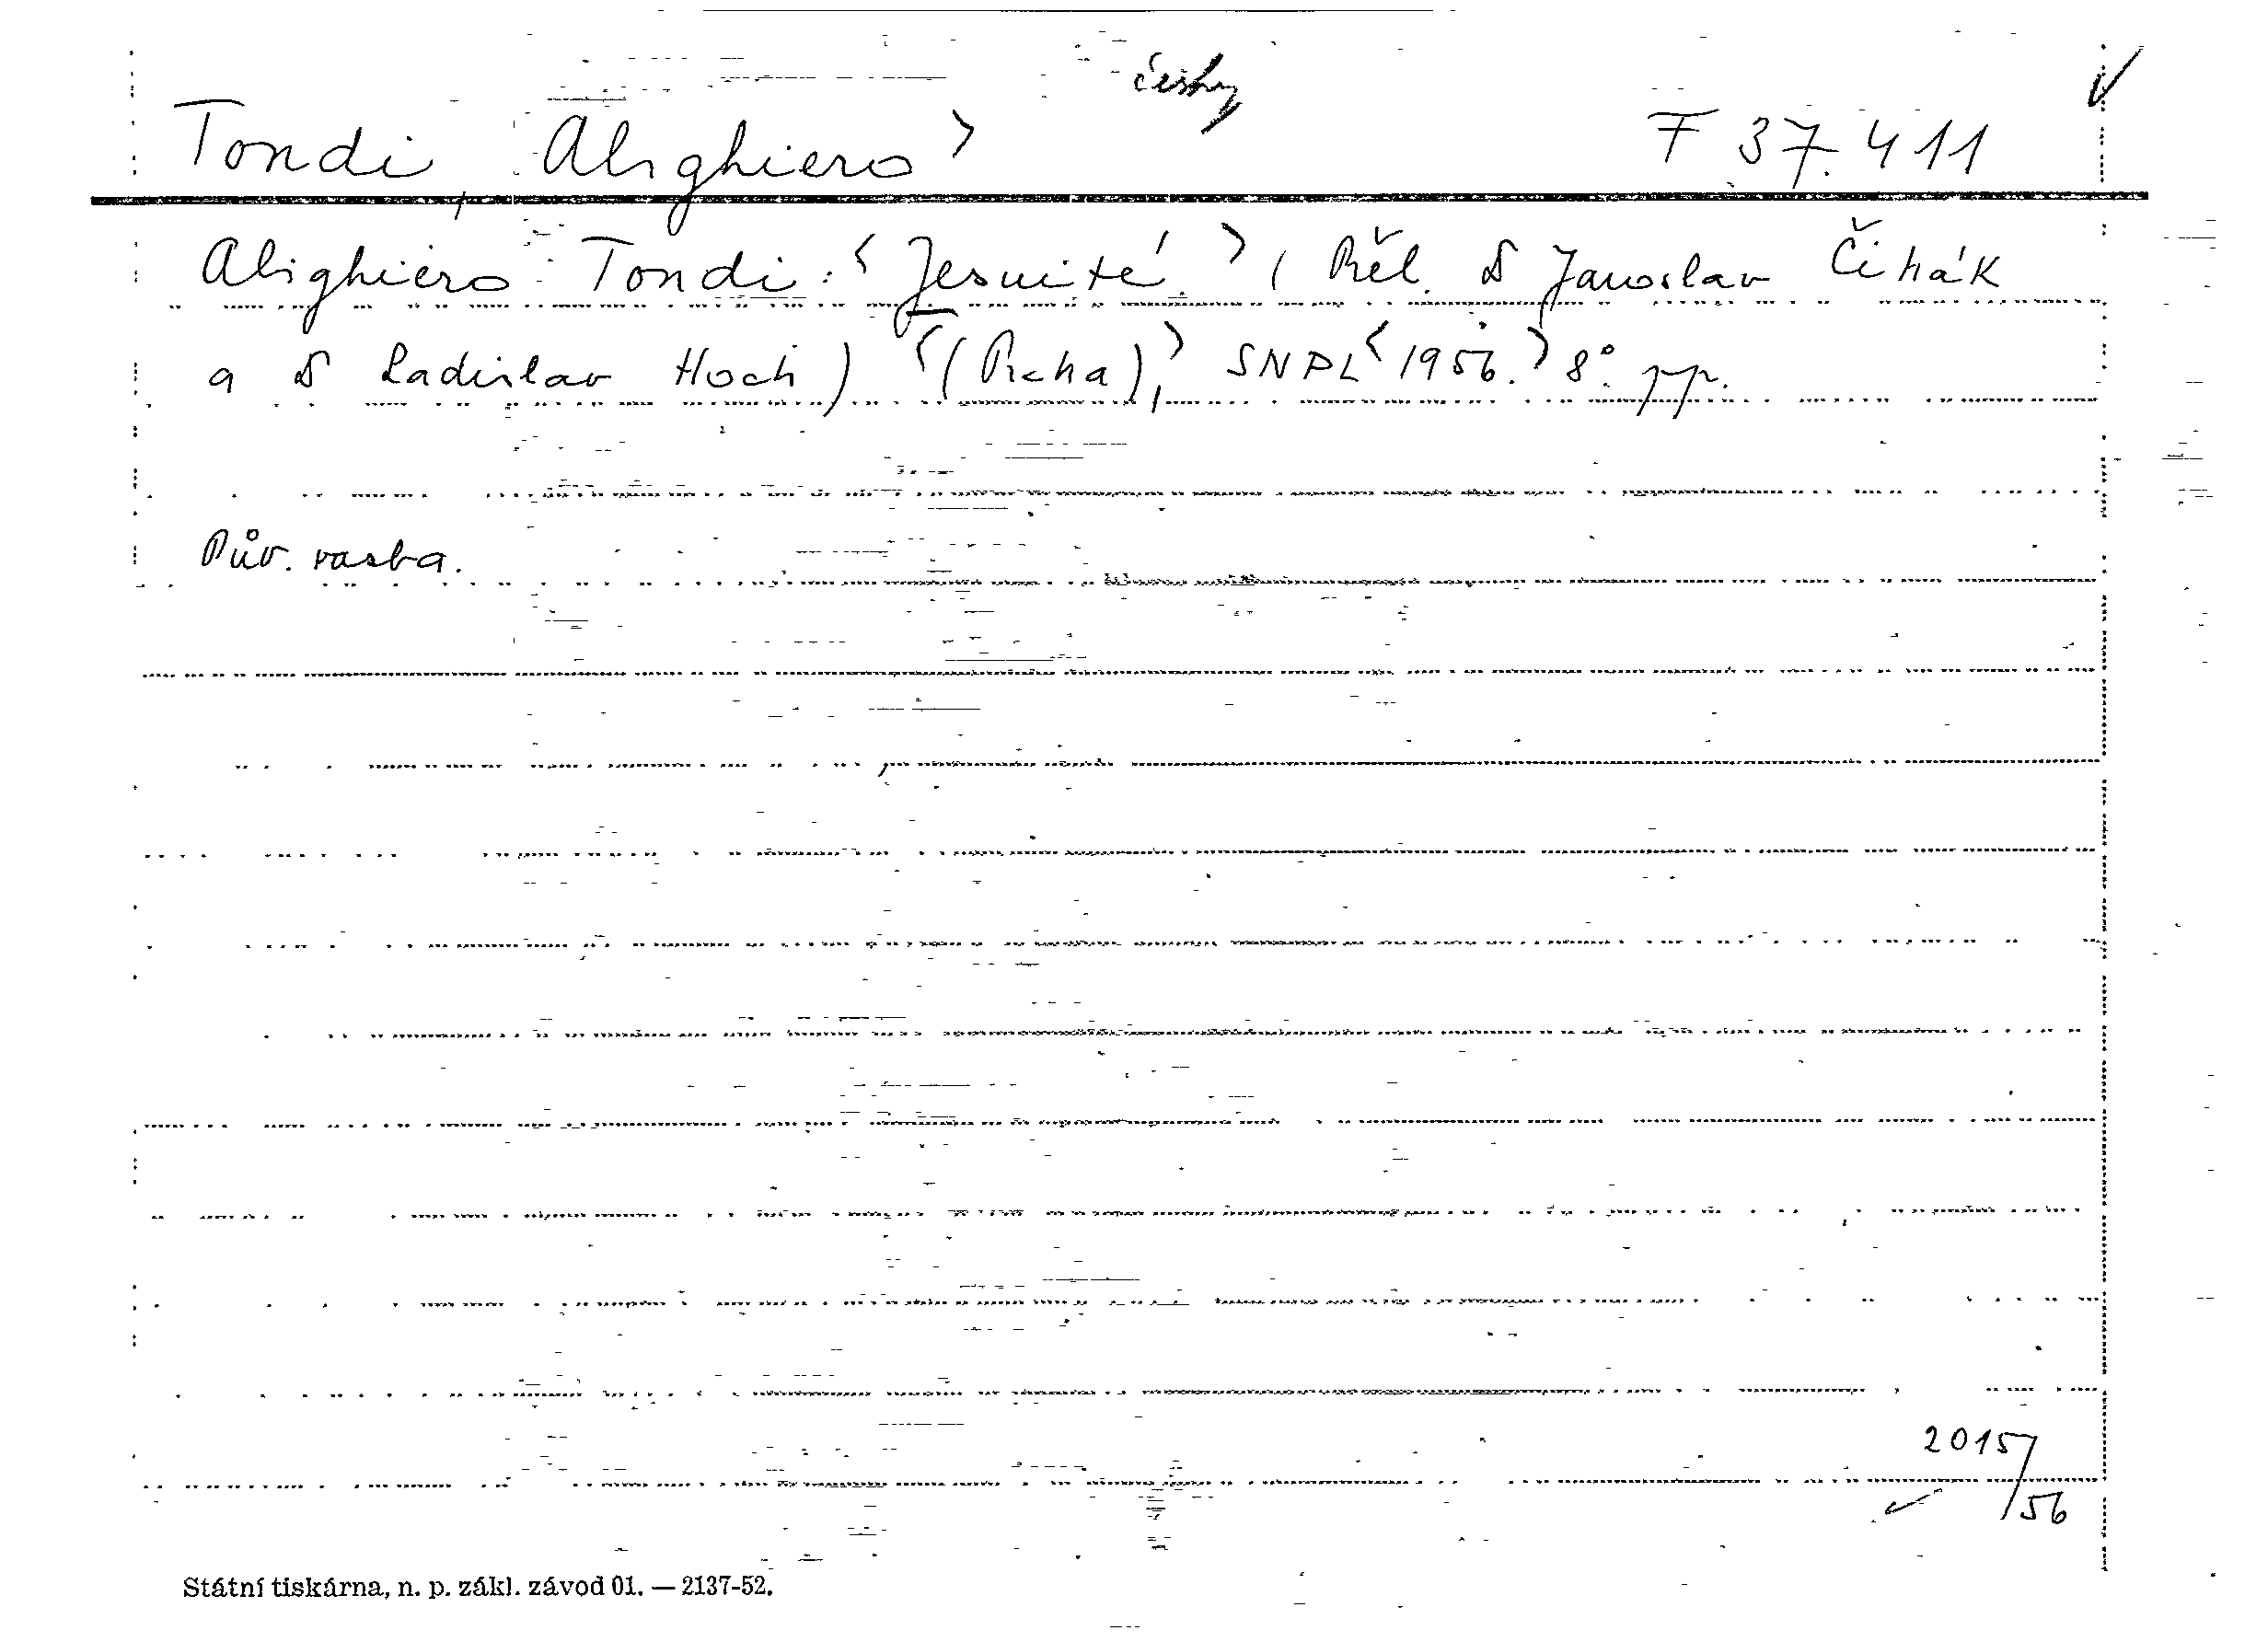 česky
Tondi, Alighiero> F 37.411
Alighiero Tondi: <Jesuité.> (Přel. D Jaroslav Čihák
a D Ladislav Hoch) <(Praha),> SNPL <1956.> 8°. pp.
Pův. vazba.
2015/56
Státní tiskárna, n. p. zákl. závod 01. — 2137-52.